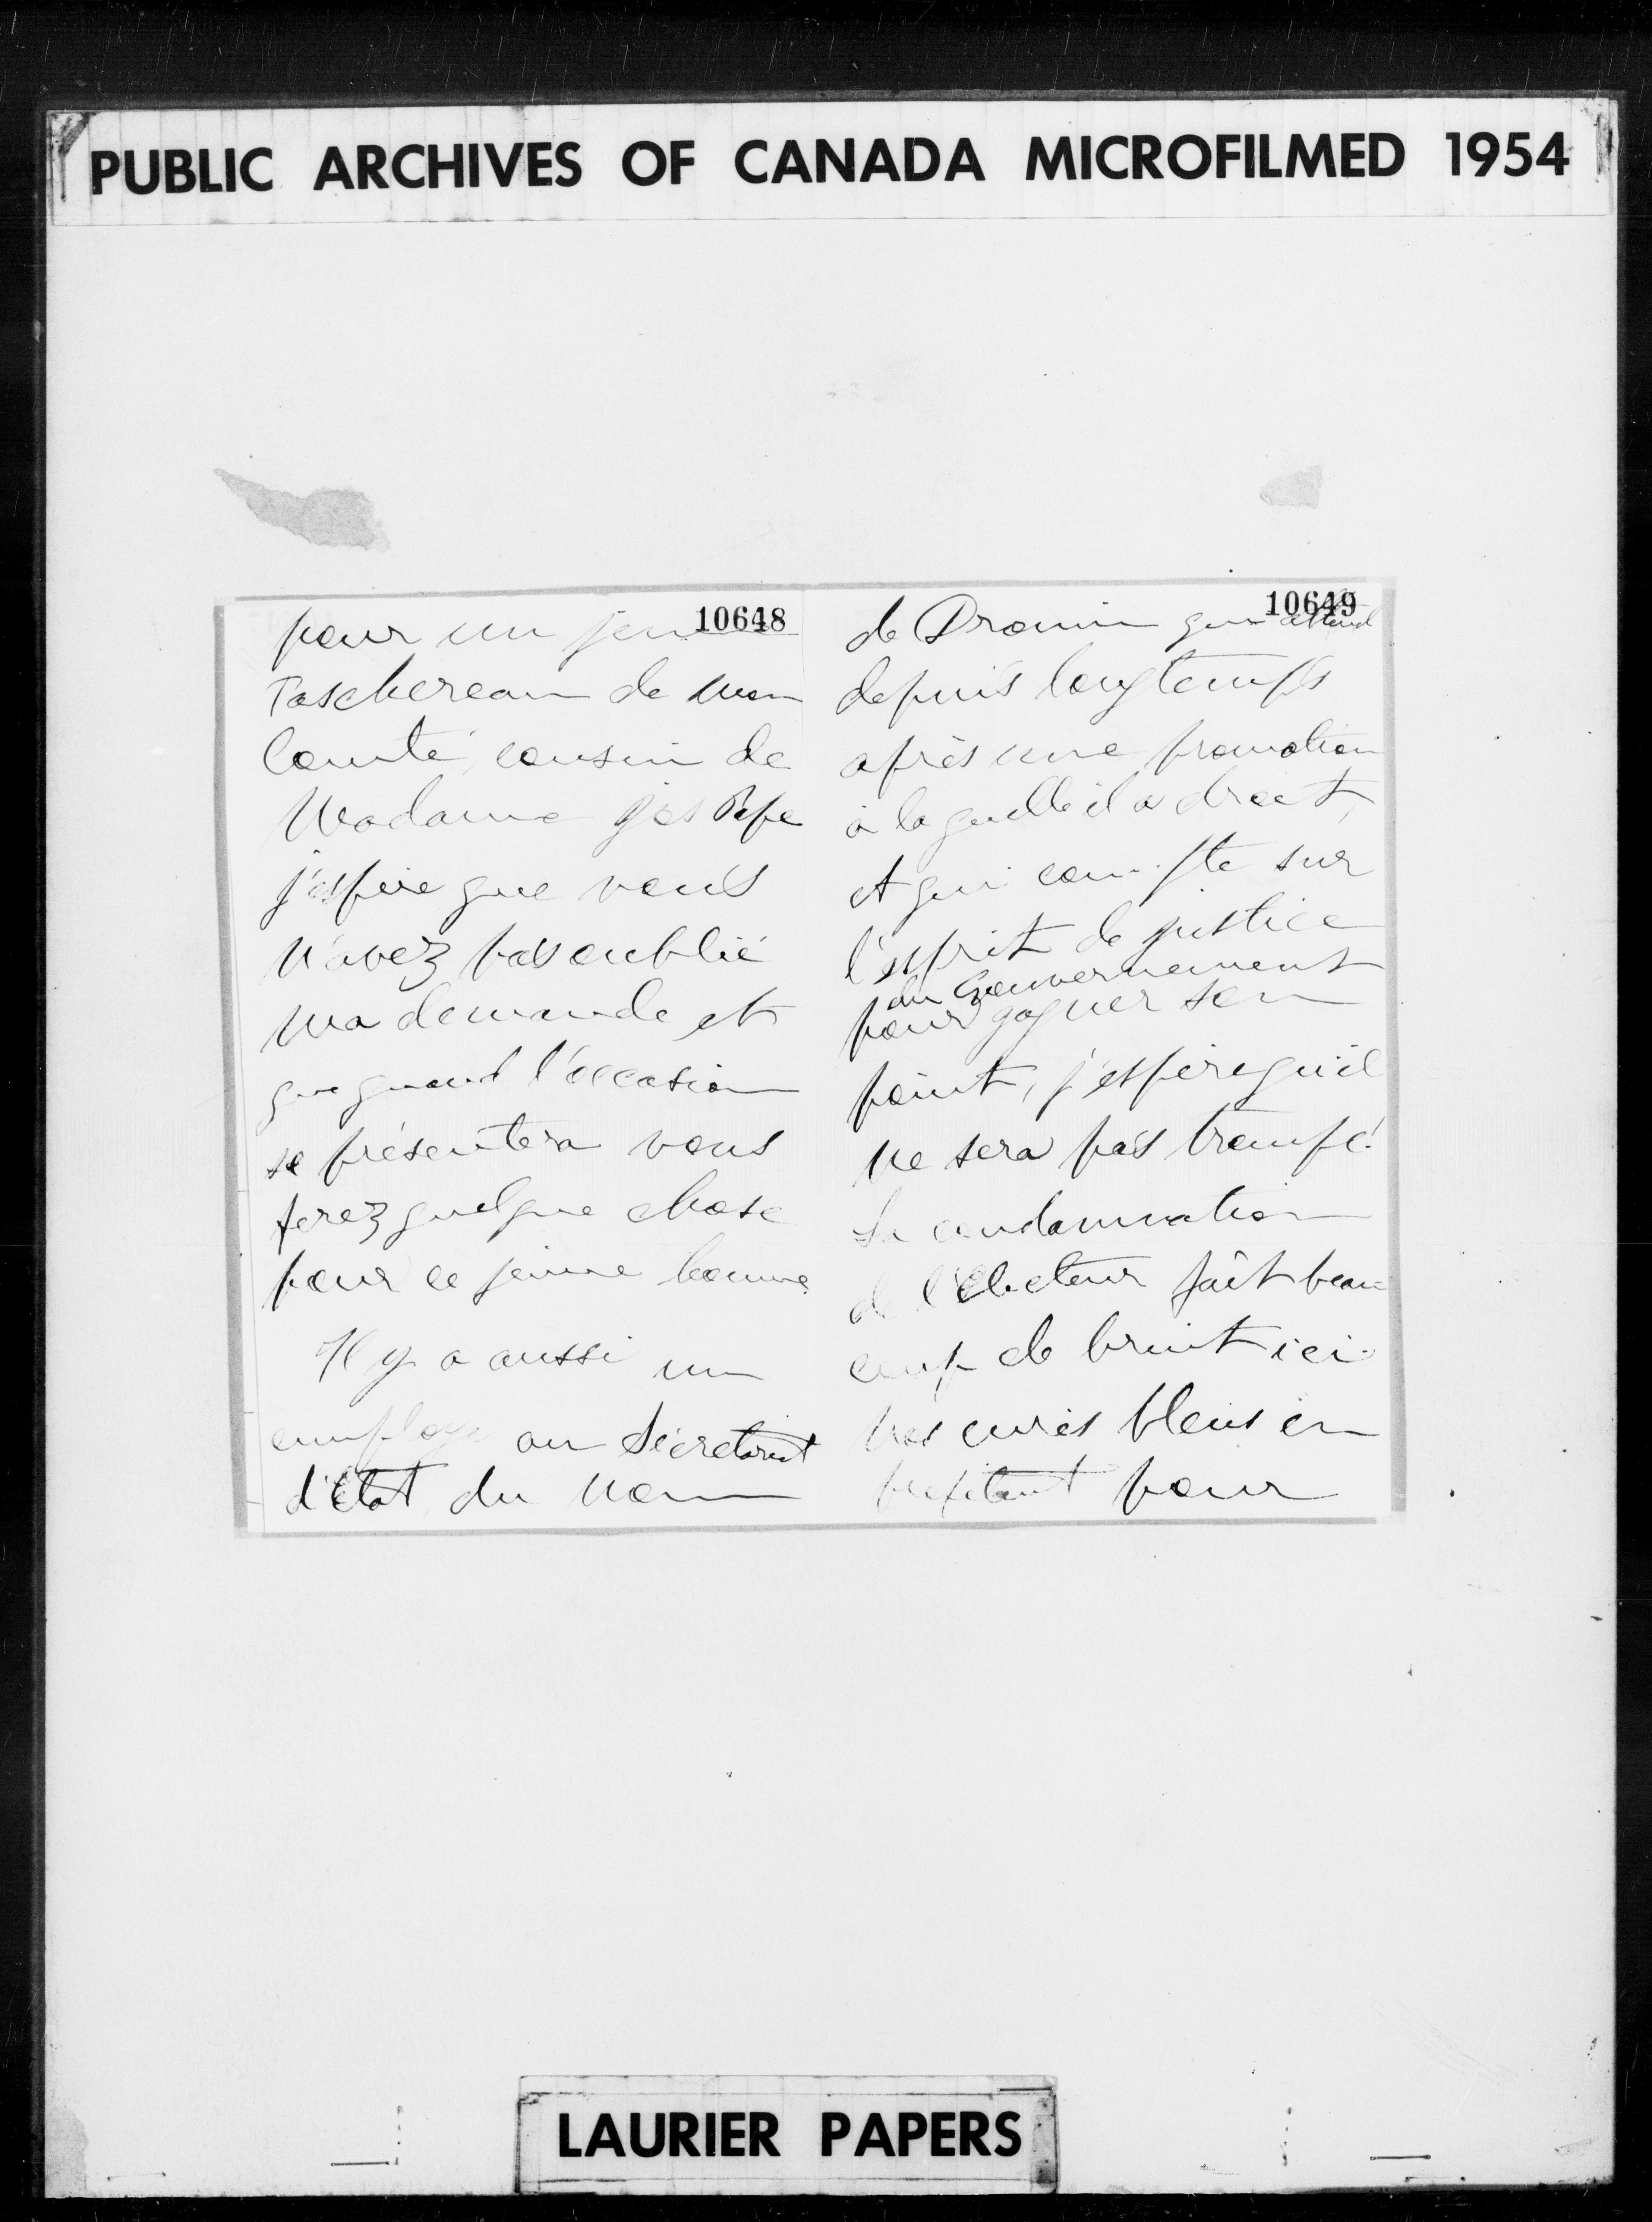 PUBLIC ARCHIVES OF CANADA MICROFILMED 1954
10648
pour un jeune
Taschereau de mon
Comté, cousin de
Madame Jos Pope
j'espère que vous
n'avez pas oublié
ma demande et
que quand l'occasion
se présentera vous
ferez quelque chose
pour ce jeune homme.
Il y a aussi un
employé au Sécrétariat
d'État du nom
10649
de Drouin qui attend
depuis longtemps
après une promotion
à laquelle il a droit,
et qui compte sur
l'esprit de justice
du Gouvernement
pour gagner son
point, j'espère qu'il
ne sera pas trompé.
La condamnation
de l'Électeur fait beau
coup de bruit ici.
Nos curés bleus en
profitent pour
LAURIER PAPERS